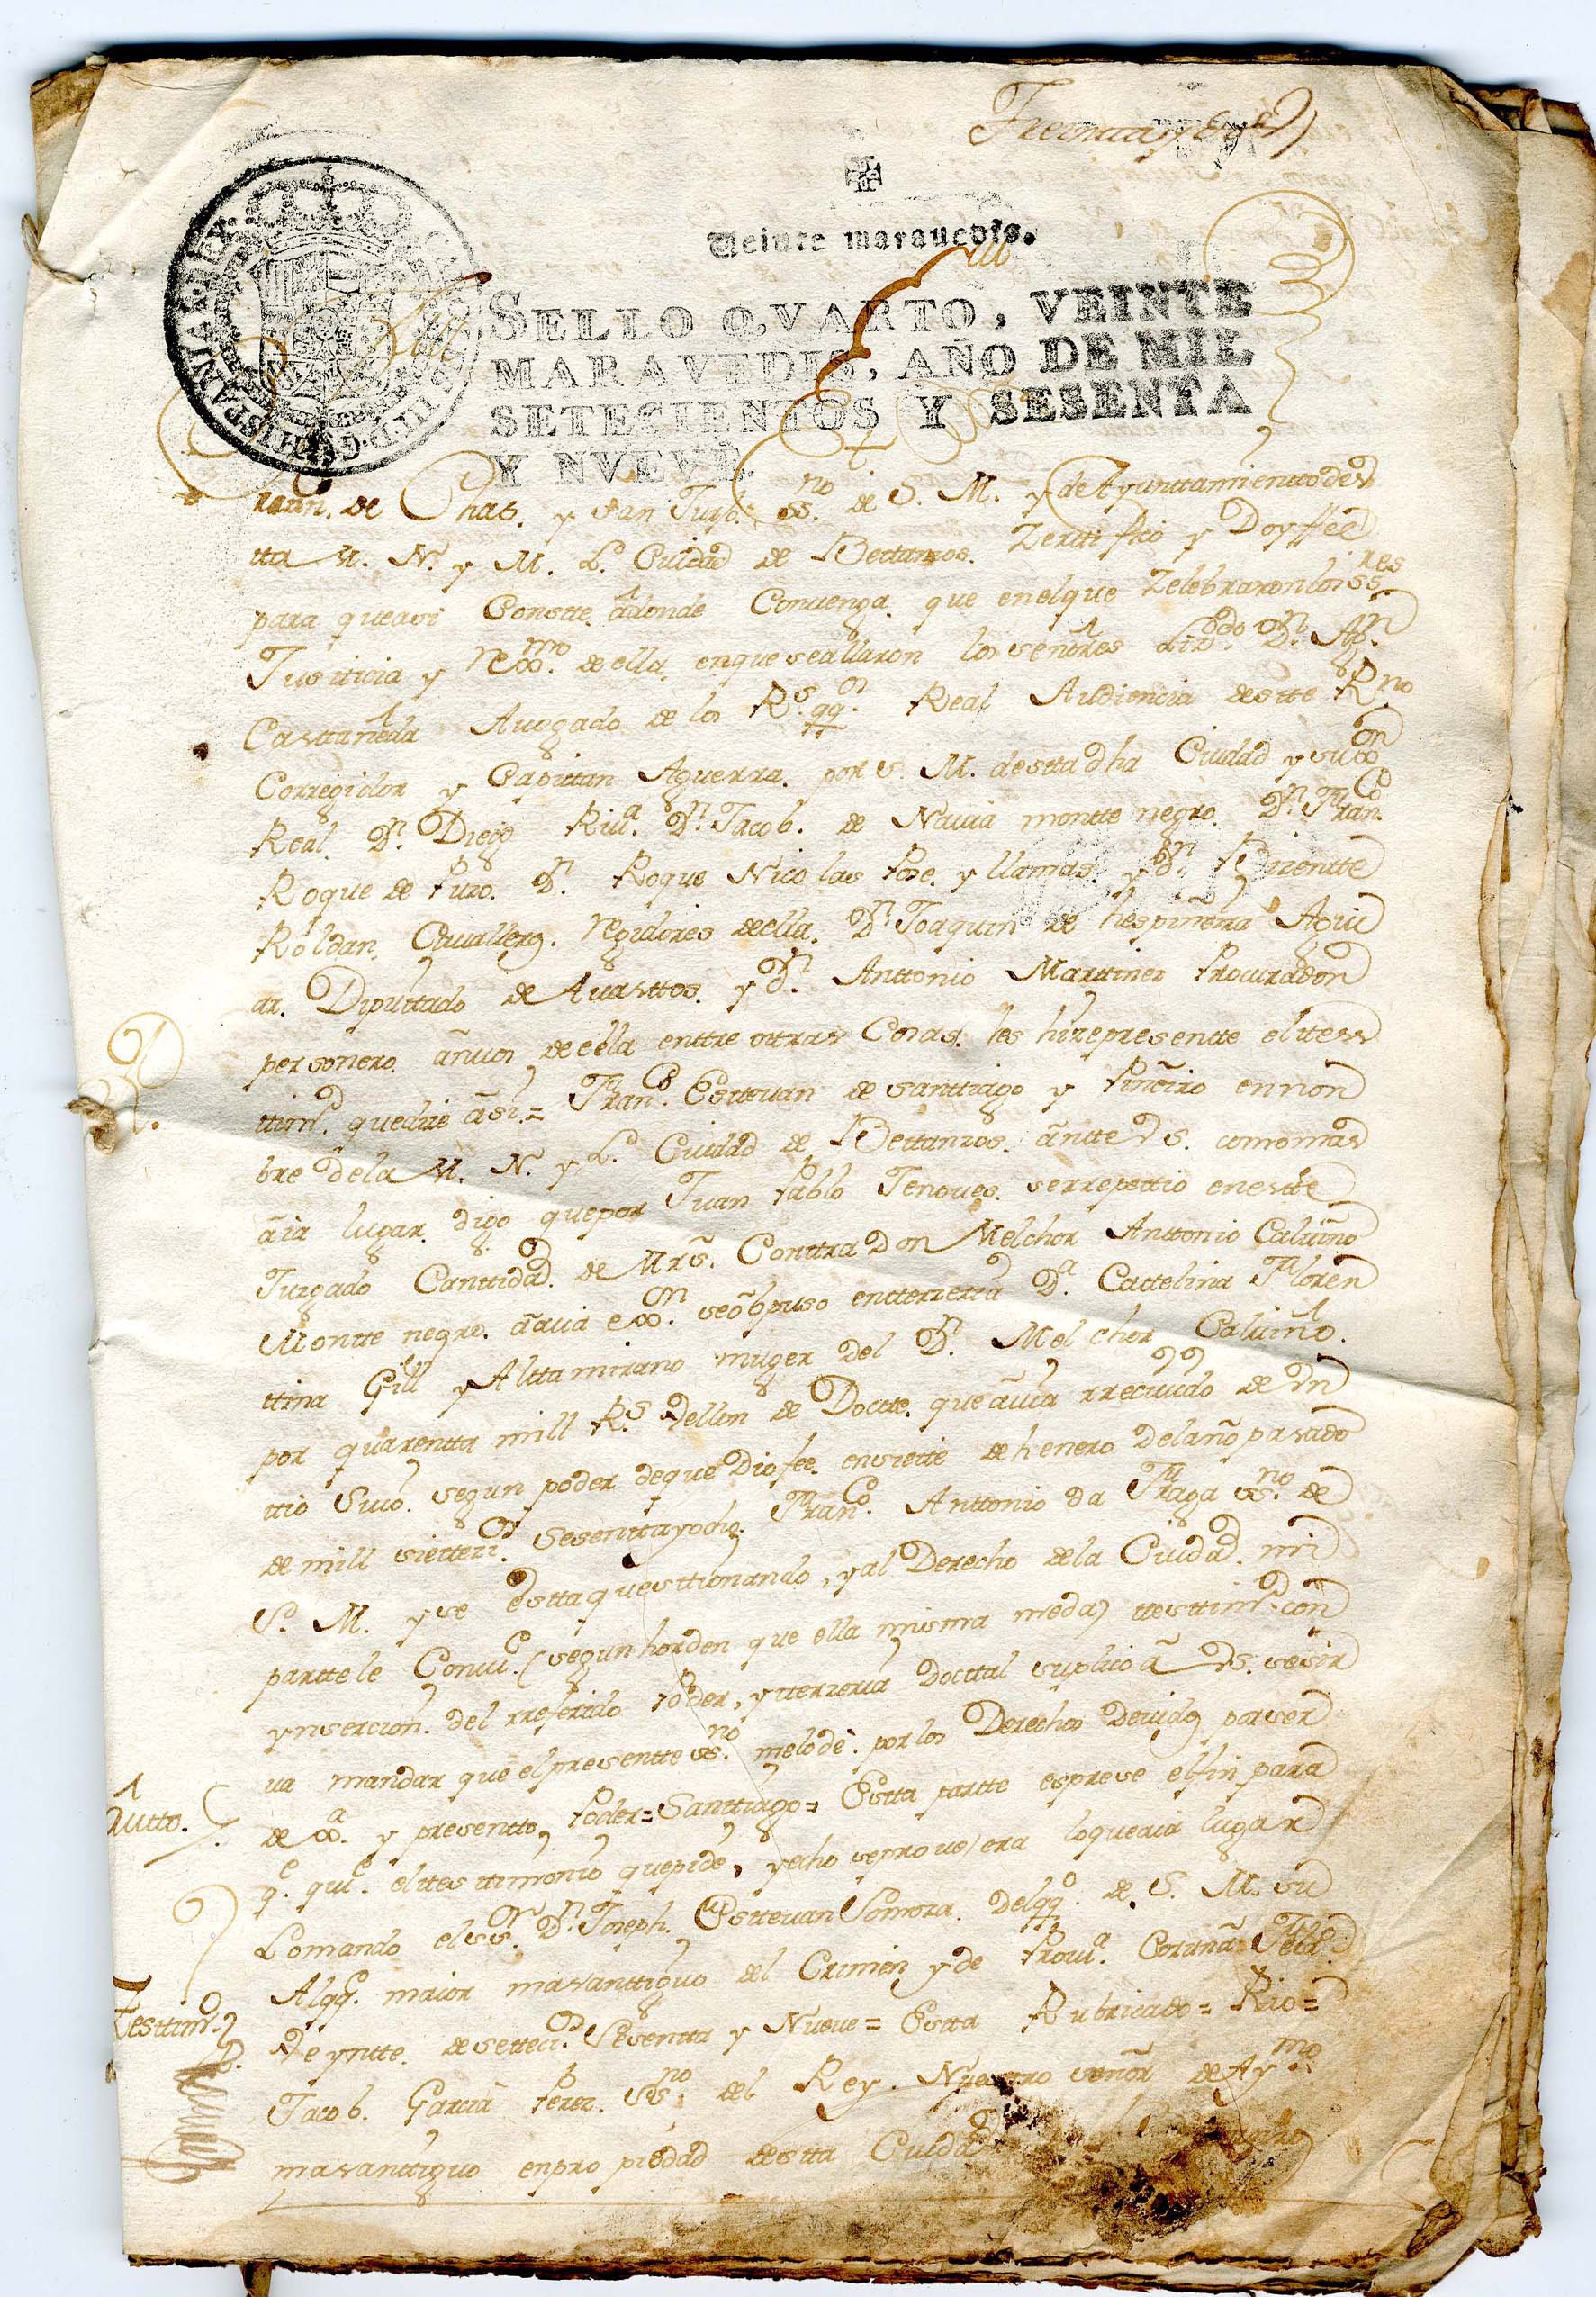 Veinte marauedis.
SELLO QVARTO, VEINTE
MARAVEDIS, AÑO DE MIL
SETECIENTOS Y SESENTA
Y NVEVE.
HISPANIAR. REX
de Chas. y san Jurº. ssno. de S. M. y de Ayunttamientto des
tta M. N. y M. L. Ciudad de Bettanzos. Zerttifico y Doyffee
para queasi Constte adonde Convenga. que enelque Zelebraron los ssres
Justticia y de ella, enque seallaron los señores Lizdo. Dn.
Casttañeda Avogado de los Rs. Real Audiencia destte Rno
Corregidor y Capittan Aguerra. por S. M. destta dha Ciudad y su
Real. Dn. Diego Dn. Jacob. de Navia montte negro. Dn. Franco.
Roque de Puzo. Dn. Roque Nicolas Pose. y llamas. y Dn. Bizentte
Roldan, Cavalleros. regidores deella. Dn. Joaquin de hespiñeira Agui
ar. Diputtado de Avasttos. y Dn. Anttonio Marttinez Procurador
personero. deella enttre ottras Cosas. les hize presentte el ttes
ttimº. quedize asi.= Franco. Esttevan de santtiago y Piñeiro en nom
bre de la M. N. y L. Ciudad de Bettanzos. antte Vs. como mas
aia lugar. digo que por Juan Pablo Jenoves. se rrepettio en estte
Juzgado Canttidad. de Mrs. Conttra Don Melchor Anttonio Calviño
Montte negro. seobpuso entterzeria Da. Cattelina Floren
ttina Gill y Alttamirano muger del Dn. Melchor Calviño.
por quarentta mill Rs. Vellon de Dotte. que avia rrecivido de Vn
ttio Suio. segun poder de que Dio fee. en siette de henero del año pasado
de mill siettezs. Sesenttayocho. Franco. Anttonio da Fraga ssno. de
S. M. y se estta questtionando, y al Derecho de la Ciudad. mi
partte le Convie. (segun horden que ella misma me da) ttesttimº. con
ynsercion. del rreferido Poder, y tterzeria Dottal suplico a Vs. se sir
va mandar que el presentte ssno. melode. por los Derechos Devidos por ser
de y presentto, Poder=Santtiago= Estta partte esprese elfin para
qe. quie. el ttesttimonio que pide, y echo se proveera loqueaia lugar
Lomando el ssor. Dn. Joseph. Esttevan Somoza. de S. M. su
maior masanttiguo del Crimen y de Provia. Coruña Febro.
Veyntte. de settezs. Sesentta y Nueve= Estta Rubricado= Rio=
Jacob. Garcia Perez. ssno. del Rey. Nuestro señor de Aymo.
masanttiguo en propiedad destta Ciudad
Autto.
Testtimº.